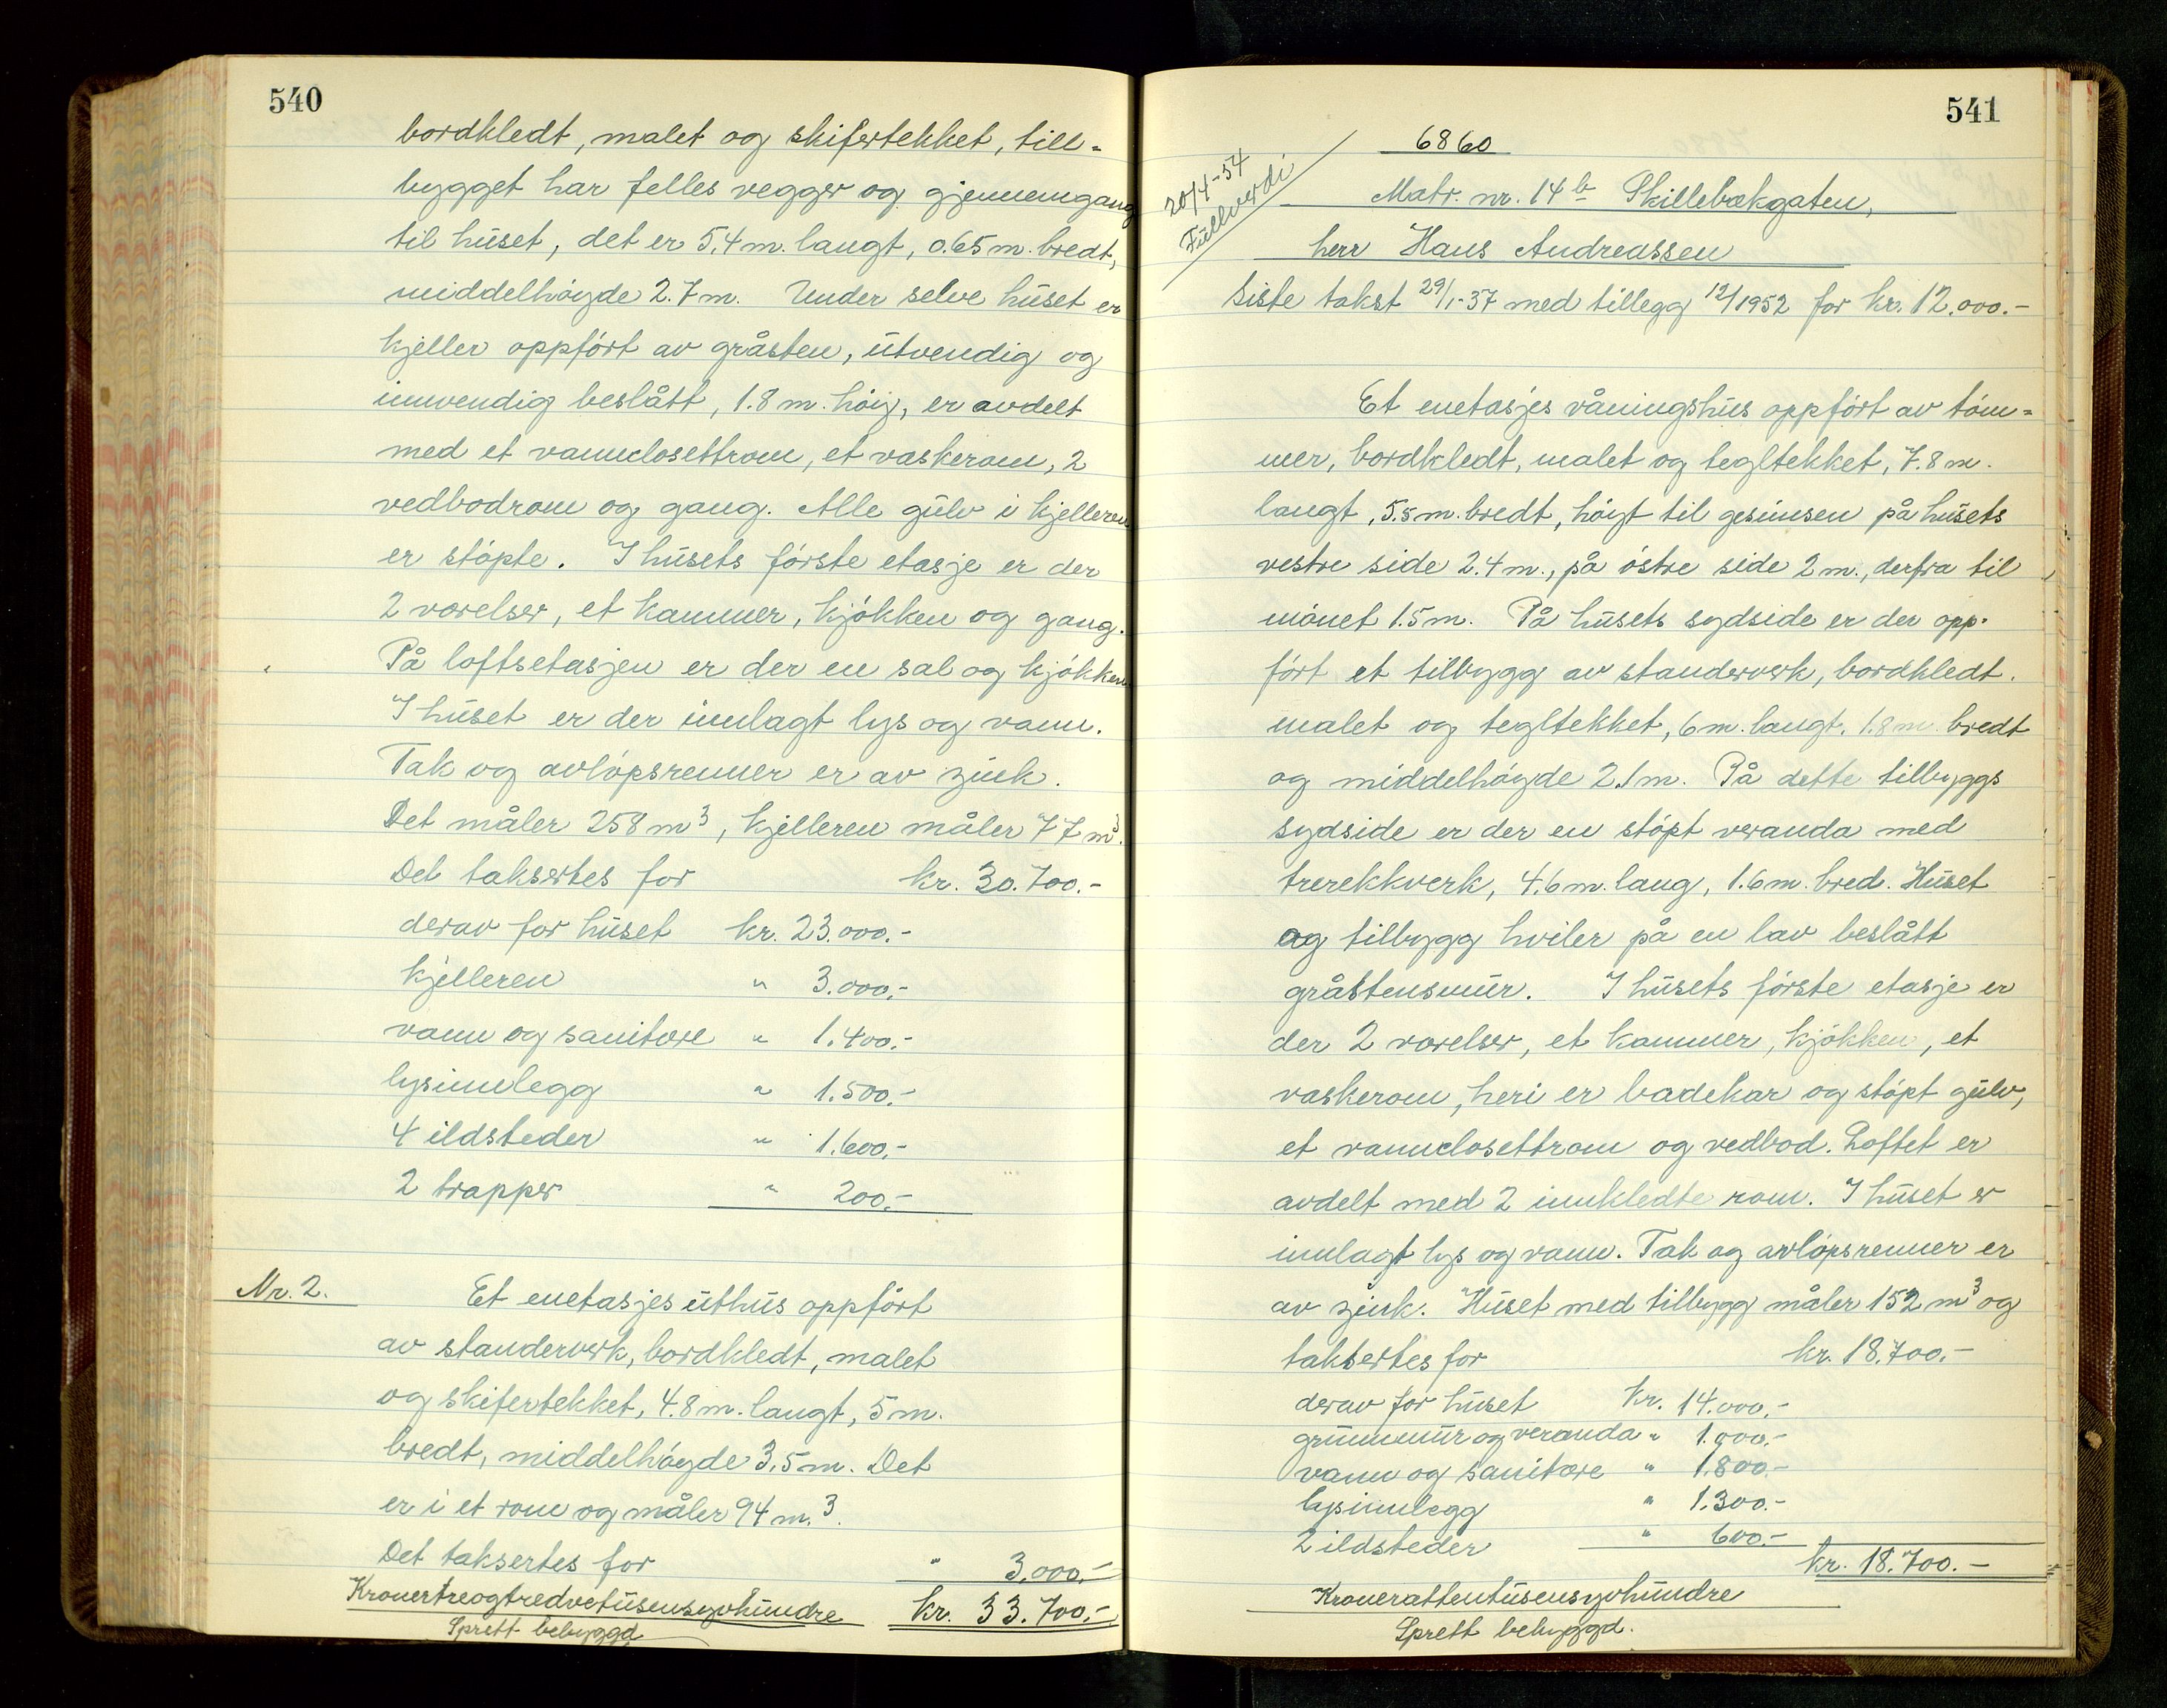 540
bordkledt, malet og skifertekket, till-
bygget har felles vegger og gjennemgang
til huset, det er 5,4 m. langt, 0.65 m. bredt,
middelhöyde 2.7 m. Under selve huset er
kjeller oppfört av gråsten, utvendig og
innvendig beslått, 1.8 m. höy, er avdelt
med et vannclosettrom, et vaskerom, 2
vedbodrom og gang. Alle gulv i kjelleren
er stöpte. I husets förste etasje er der
2 værelser, et kammer, kjökken og gang.
På loftsetasjen er der en sal og kjökken
I huset er der innlagt lys og vann.
Tak og avlöpsrenner er av zink.
Det måler 258 m³, kjelleren måler 77 m³.
Det taksertes for kr. 30.700.-
derav for huset kr. 23.000.-
kjelleren " 3.000.-
vann og sanitære " 1.400.-
lysinnlegg " 1.500.-
4 ildsteder " 1.600.-
2 trapper " 200.-
Nr. 2. Et enetasjes uthus oppfört
av standerverk, bordkledt, malet
og skifertekket, 4.8 m. langt, 5 m.
bredt, middelhöyde 3,5 m. Det
er i et rom og måler 94 m.³.
Det taksertes for " 3.000.-
Kronertreogtredvetusensyvhundre kr. 33.700.-
Sprett bebyggd
541
6860
20/4-54
Fullverdi
Matr. nr. 14 b Skillebækgaten,
herr Hans Andreassen
Siste takst 29/1-37 med tillegg 12/1952 for kr. 12.000.-
Et enetasjes våningshus oppfört av töm-
mer, bordkledt, malet og tegltekket, 7.8 m.
langt, 5.5 m. bredt, höyt til gesimsen på husets
vestre side 2.4 m., på östre side 2 m., derfra til
mönet 1.5 m. På husets sydside er der opp-
fört et tilbygg av standerverk, bordkledt.
malet og tegltekket, 6 m. langt, 1.8 m. bredt
og middelhöyde 2.1 m. På dette tilbyggs
sydside er der en stöpt veranda med
trerekkverk, 4.6 m. lang, 1.6 m. bred. Huset
og tilbygg hviler på en lav beslått
gråstensmur. I husets förste etasje er
der 2 værelser, et kammer, kjökken, et
vaskerom, heri er badekar og stöpt gulv,
et vannclosettrom og vedbod. Loftet er
avdelt med 2 innkledte rom. I huset er
innlagt lys og vann. Tak og avlöpsrenner er
av zink. Huset med tilbygg måler 152 m³ og
taksertes for kr. 18.700.-
derav for huset kr. 14.000.-
grunnmur og veranda " 1.000.-
vann og sanitære " 1.800.-
lysinnlegg " 1.300.-
2 ildsteder " 600.-
kr. 18.700.-
Kroneratttentusensyvhundre
Sprett bebyggd.